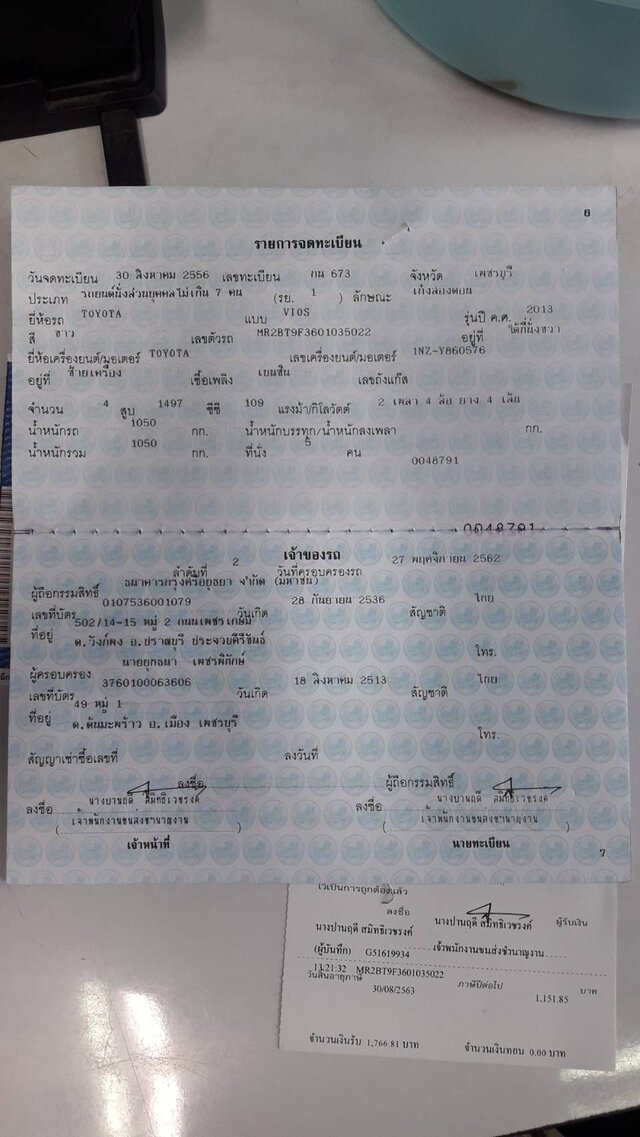 6
รายการจดทะเบียน
วันจดทะเบียน 30 สิงหาคม 2556 เลขทะเบียน กน 673 จังหวัด เพชรบุรี
ประเภท รถยนต์นั่งส่วนบุคคลไม่เกิน 7 คน (รย. 1 ) ลักษณะ เก๋งสองตอน
ยี่ห้อรถ TOYOTA แบบ VIOS รุ่นปี ค.ศ. 2013
สี ขาว เลขตัวรถ MR2BT9F3601035022 อยู่ที่ ใต้ที่นั่งขวา
ยี่ห้อเครื่องยนต์/มอเตอร์ TOYOTA เลขเครื่องยนต์/มอเตอร์ 1NZ-Y860576
อยู่ที่ ซ้ายเครื่อง เชื้อเพลิง เบนซิน เลขถังแก๊ส
จำนวน 4 สูบ 1497 ซีซี 109 แรงม้า/กิโลวัตต์ 2 เพลา 4 ล้อ ยาง 4 เส้น
น้ำหนักรถ 1050 กก. น้ำหนักบรรทุก/น้ำหนักลงเพลา กก.
น้ำหนักรวม 1050 กก. ที่นั่ง 5 คน
0048791
0048791
เจ้าของรถ
ลำดับที่ 2 วันที่ครอบครองรถ 27 พฤศจิกายน 2562
ผู้ถือกรรมสิทธิ์ ธนาคารกรุงศรีอยุธยา จำกัด (มหาชน)
เลขที่บัตร 0107536001079 วันเกิด 28 กันยายน 2536 สัญชาติ ไทย
ที่อยู่ 502/14-15 หมู่ 2 ถนนเพชรเกษม
ต.วังก์พง อ.ปราณบุรี ประจวบคีรีขันธ์ โทร.
ผู้ครอบครอง นายยุกธนา เพชรพิทักษ์
เลขที่บัตร 3760100063606 วันเกิด 18 สิงหาคม 2513 สัญชาติ ไทย
ที่อยู่ 49 หมู่ 1
ต.ต้นมะพร้าว อ.เมือง เพชรบุรี โทร.
สัญญาเช่าซื้อเลขที่ ลงวันที่
ลงชื่อ ผู้ถือกรรมสิทธิ์
ลงชื่อ นางปานฤดี สมิทธิเวชรงค์ ลงชื่อ นางปานฤดี สมิทธิเวชรงค์
( เจ้าพนักงานขนส่งชำนาญงาน ) ( เจ้าพนักงานขนส่งชำนาญงาน )
เจ้าหน้าที่ นายทะเบียน
7
ไว้เป็นการถูกต้องแล้ว
ลงชื่อ ผู้รับเงิน
นางปานฤดี สมิทธิเวชรงค์ นางปานฤดี สมิทธิเวชรงค์
(ผู้บันทึก) G51619934 เจ้าพนักงานขนส่งชำนาญงาน
13:21:32 MR2BT9F3601035022
วันสิ้นอายุภาษี 30/08/2563 ภาษีปีต่อไป 1,151.85 บาท
จำนวนเงินรับ 1,766.81 บาท จำนวนเงินทอน 0.00 บาท